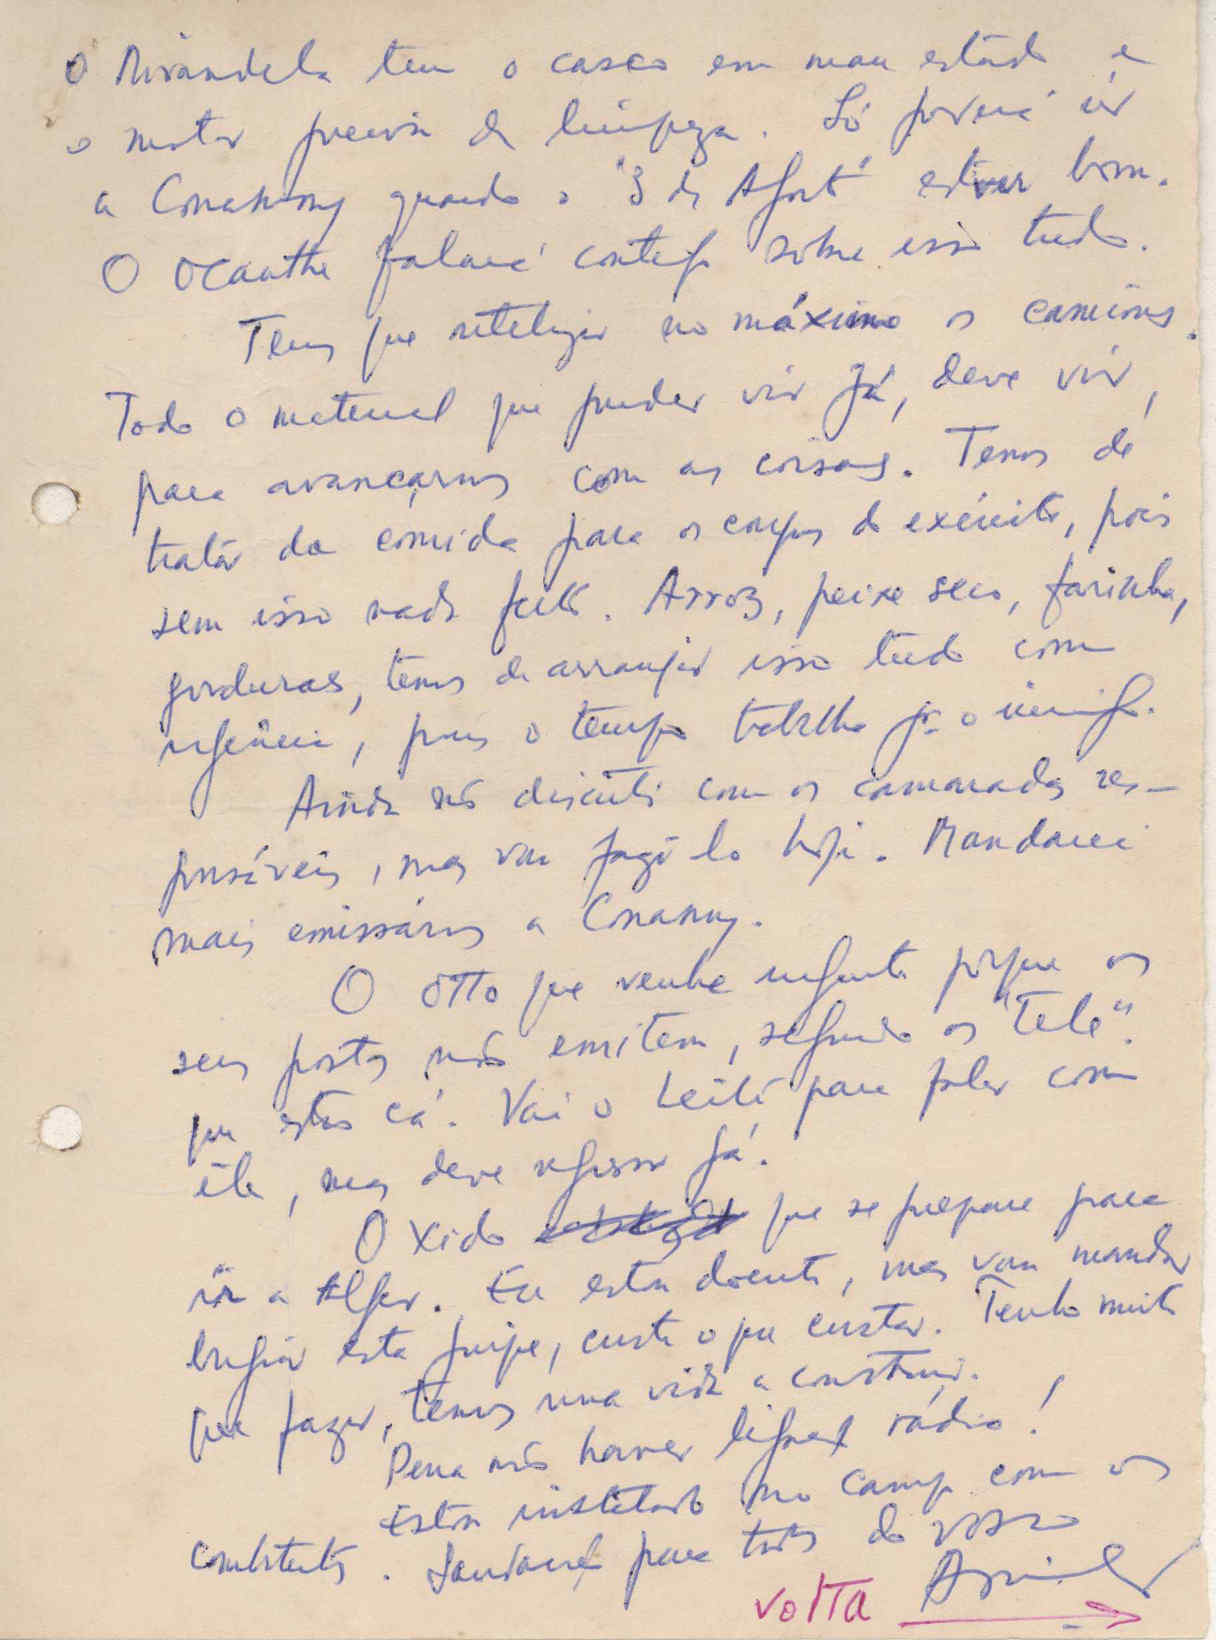 O Mirandela tem o casco em mau estado e
o motor precisa de limpeza. Só poderá ir
a Conakry quando o "3 de Agost" estiver bom.
O Ocanthe falará contigo sôbre isso tudo.
Temos que no máximo os camiões.
Todo o material que puder vir já, deve vir,
para avançarmos com as coisas. Temos de
tratar da comida para os corpos do exército, pois
sem isso nada feito. Arroz, peixe seco, farinha,
gorduras, temos de arranjar isso tudo com
urgência, pois o tempo trabalha pª o inimigo.
Ainda não discuti com os camaradas res-
ponsáveis, mas vou fazê-lo hoje. Mandarei
mais emissários a Conakry.
O Otto que venha urgente porque os
seus postos não emitem, segundo os "Tele".
que estão cá. Vai o Leite para falar com
êle, mas deve regressar já.
O Xido que se prepare para
ir a Alger. Eu estou doente, mas vou mandar
esta gripe, custe o que custar. Tenho muito
que fazer, temos uma vida a construir.
Pena não haver ligação rádio!
Estou instalado no campo com os
combatentes. Saudações para todos do vosso
VOLTA